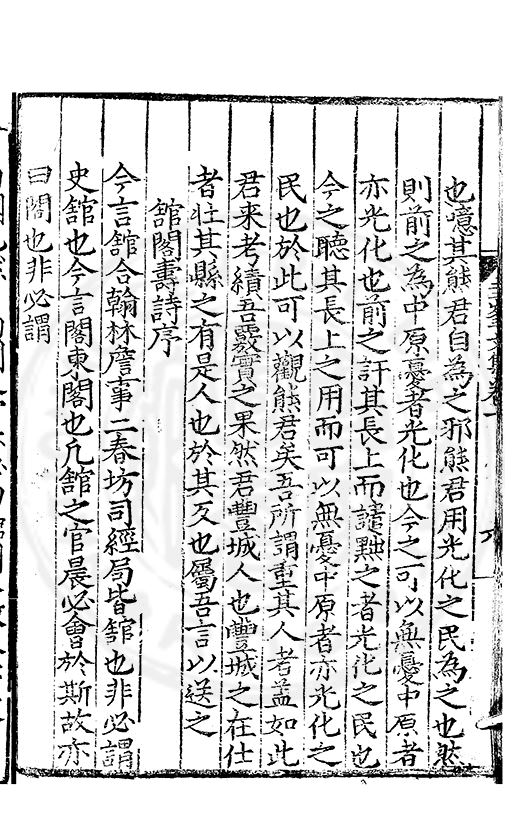 也噫其熊君自為之邪熊君用光化之民為之也然
則前之為中原憂者光化也今之可以無憂中原者
亦光化也前之訐其長上而譴黜之者光化之民也
今之聽其長上之用而可以無憂中原者亦光化之
民也於此可以觀熊君矣吾所謂重其人者盖如此
君来考績吾覈實之果然君豐城人也豐城之在仕
者壮其縣之有是人也於其反也屬吾言以送之
舘閣壽詩序
今言舘合翰林詹事二春坊司經局皆舘也非必謂
史舘也今言閣東閣也凢舘之官晨必會於斯故亦
曰閣也非必謂